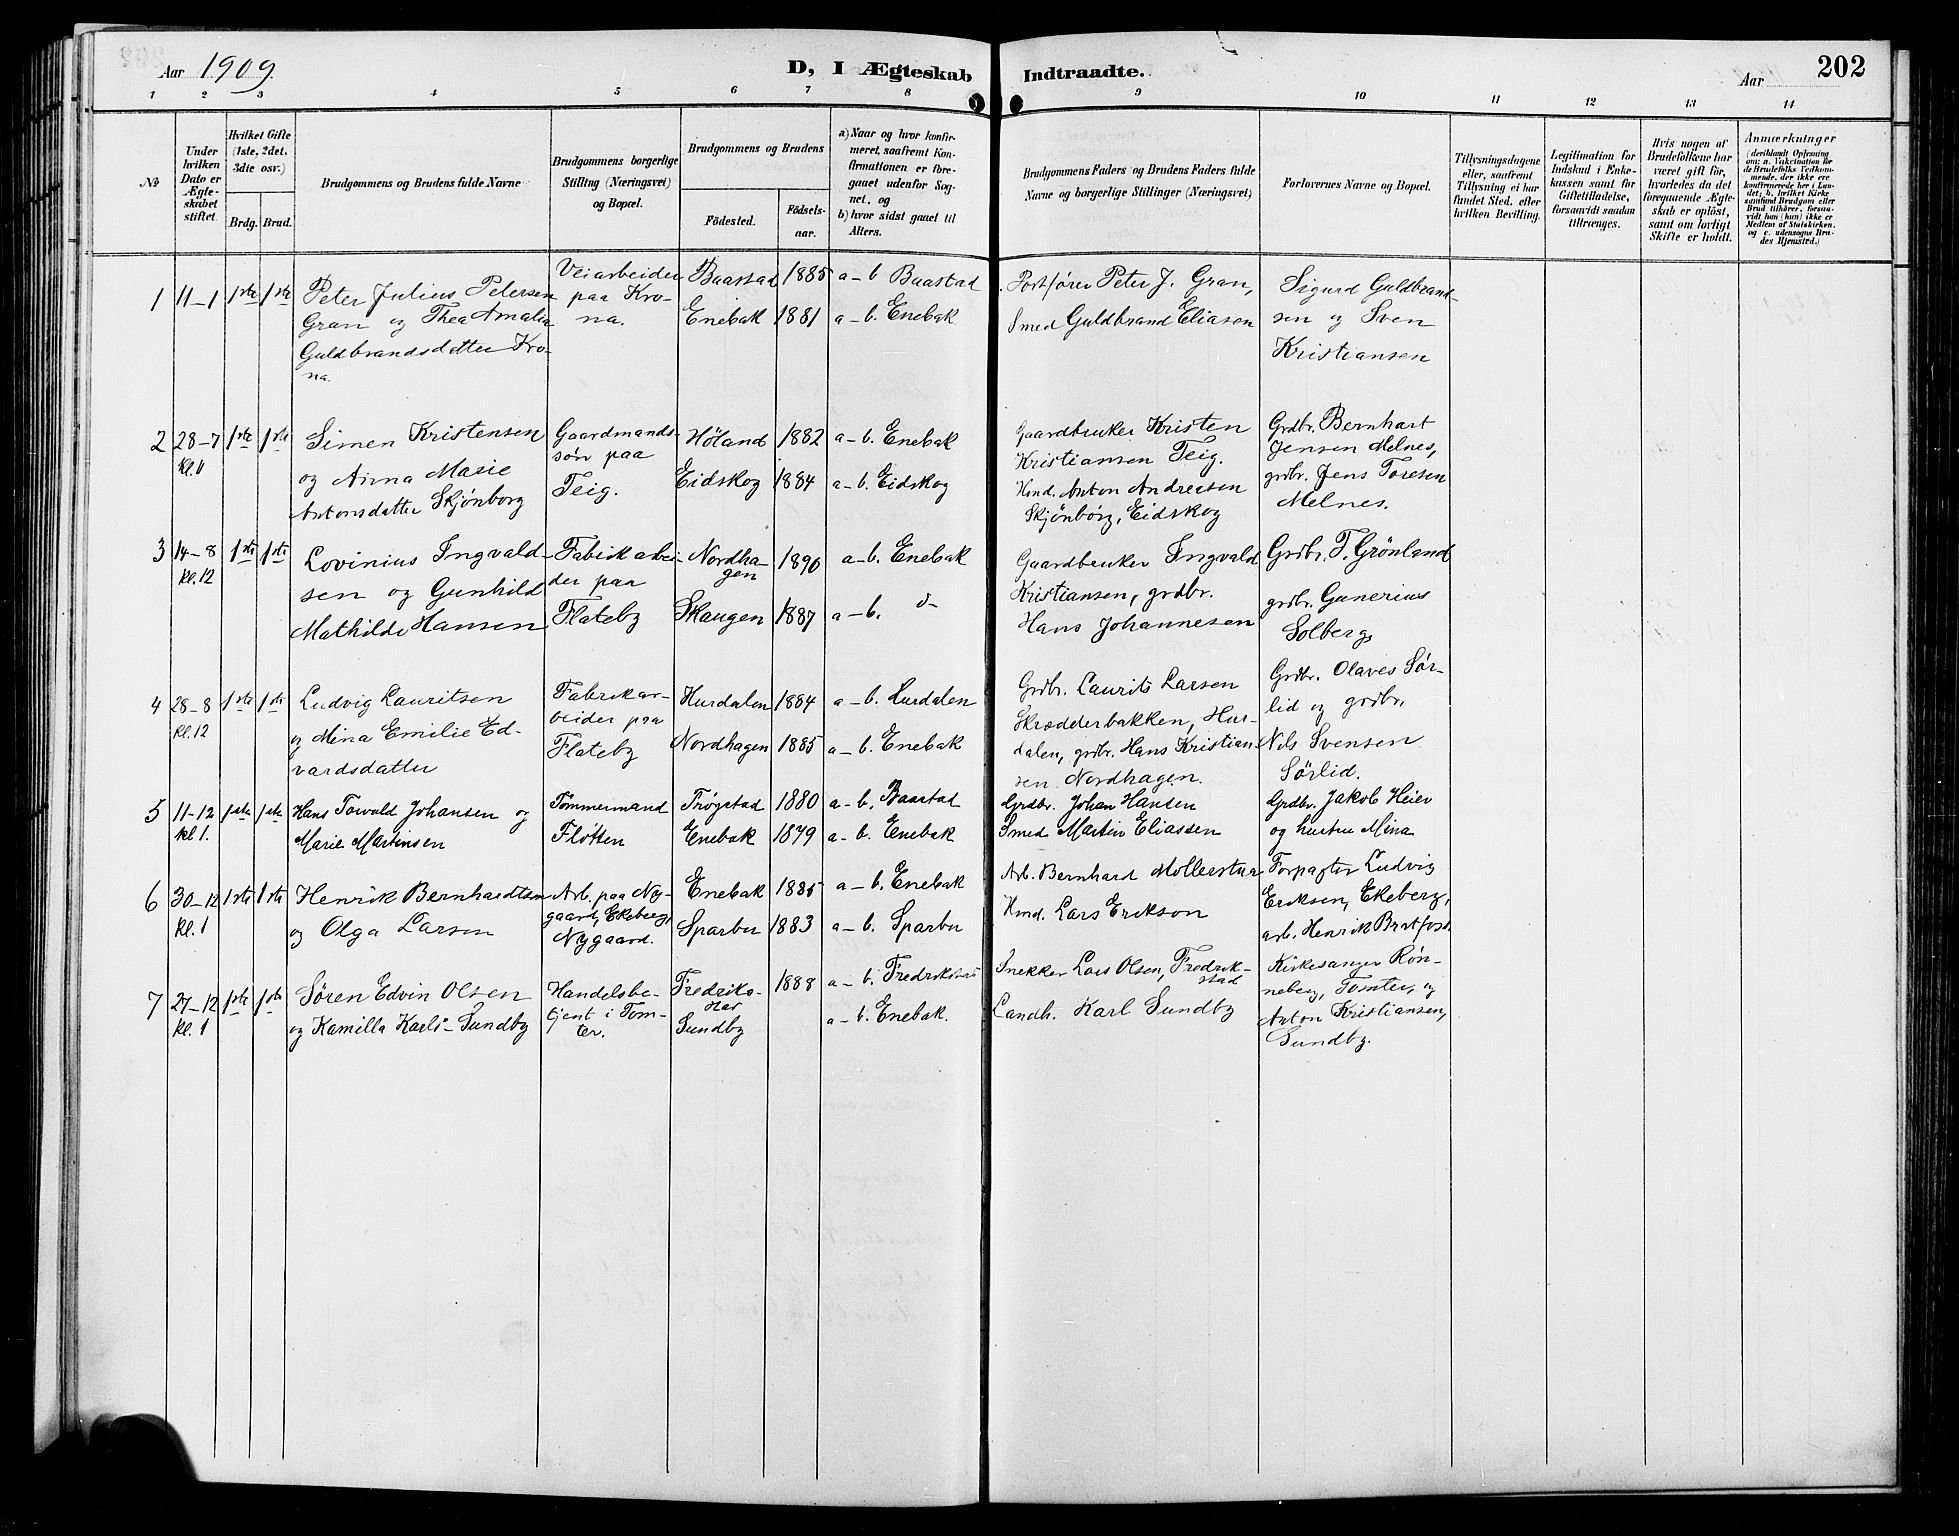 Aar 1909
D, I Ægteskab Indtraadte.
Aar
202
1 2 3 4 5 6 7 8 9 10 11 12 13 14
No
Under
hvilken
Dato er
Ægte-
skabet
stiftet.
Hvilket Gifte
(1ste, 2det,
3die osv.)
Brdg. Brud.
Brudgommens og Brudens fulde Navne
Brudgommens borgerlige
Stilling (Næringsvei)
og Bopæl.
Brudgommens og Brudens
Fødested.
Fødsels-
aar.
a) Naar og hvor konfir-
meret, saafremt Kon-
firmationen er fore-
gaaet udenfor Sog-
net, og
b) hvor sidst gaaet til
Alters.
Brudgommens Faders og Brudens Faders fulde
Navne og borgerlige Stillinger (Næringsvei)
Forlovernes Navne og Bopæl.
Tillysningsdagene
eller, saafremt
Tillysning ei har
fundet Sted, efter
hvilken Bevilling.
Legitimation for
Indskud i Enke-
kassen samt for
Giftetilladelse,
forsaavidt saadan
tiltrænges.
Hvis nogen af
Brudefolkene har
været gift før,
hvorledes da det
foregaaende Ægte-
skab er opløst,
samt om lovligt
Skifte er holdt.
Anmærkninger
(deriblandt Oplysning
om: a. Vakcination for
de Brudefolks Vedkom-
mende, der ikke ere
konfirmerede her i Lan-
det; b. hvilket Kirke
samfund Brudgom eller
Brud tilhører, forsaa-
vidt han (hun) ikke er
Medlem af Statskirken.
og c. udensogns Bru-
des Hjemsted.)
1 11-1 1ste 1ste
Peter Julius Petersen
Gran og Thea Amalia
Guldbrandsdatter Kro-
na.
Veiarbeider
paa Kro-
na.
Baastad 1885 a-b Baastad
Enebak 1881 a-b. Enebak
Postfører Peter J. Gran,
Smed Guldbrand Eliasen
Sigurd Guldbrand-
sen og Sven
Kristiansen
2 28-7 1ste 1ste
kl. 11
Simen Kristensen
og Anna Marie
Antonsdatter Skjønborg
Gaardmands-
søn paa
Teig.
Høland 1882 a-b. Enebak
Eidskog 1884 a-b. Eidskog
Gaardbruker Kristen
Kristiansen Teig.
Hmd. Anton Andreesen
Skjønborg, Eidskog
Grdbr. Bernhart
Jensen Melnes,
grdbr. Jens Toresen
Melnes.
3 14-8 1ste 1ste
kl. 12
Lovinius Ingvald-
sen og Gunhild
Mathilde Hansen
Fabrikarbei-
der paa
Flateby
Nordha-
gen 1890 a-b. Enebak
Skaugen 1887 a-b. d-
Gaardbruker Ingvald
Kristiansen, grdbr.
Hans Johannesen
Grdbr. T. Grønland
grdbr. Gunerius
Solberg
4 28-8 1ste 1ste
kl. 12
Ludvig Lauritsen
og Mina Emilie Ed-
vardsdatter
Fabrikar-
beider paa
Flateby
Hurdalen 1884 a-b. Hurdalen
Nordhagen 1885 a-b. Enebak
Grdbr. Laurits Larsen
Skrædderbakken, Hur-
dalen, grdbr. Hans Kristian-
sen Nordhagen.
Grdbr. Olaves Sør-
lid og grdbr.
Nils Svensen
Sørlid.
5 11-12 1ste 1ste
kl 1.
Hans Torvald Johansen og
Marie Martinsen
Tømmermand
Fløtten
Trøgstad 1880 a-b. Baastad
Enebak 1879 a-b. Enebak
Grdbr. Johan Hansen
Smed Martin Eliassen
Grdbr. Jakob Heier
og hustru Mina
6 30-12 1ste 1ste
kl. 1
Henrik Bernhardtsen
og Olga Larsen
Arb. paa Ny-
gaard, Ekeberg,
Nygaard.
Enebak 1885 a-b. Enebak
Sparbu 1883 a-b. Sparbu
Arb. Bernhard Mollerstuen
Hmd. Lars Erikson
Forpagter Ludvig
Eriksen, Ekeberg,
arb. Henrik Bratfoss
7 27-12 1ste 1ste
kl. 1
Søren Edvin Olsen
og Kamilla Karls- Sundby
Handelsbe-
tjent i Tom-
ter.
Fredriks-
stad 1888 a-b. Fredrikstad
Sundby a-b. Enebak.
Snekker Lars Olsen, Fredrik-
stad
Landh. Karl Sundby
Kirkesanger Røn-
neberg, Tomter, og
Anton Kristiansen,
Sundby.